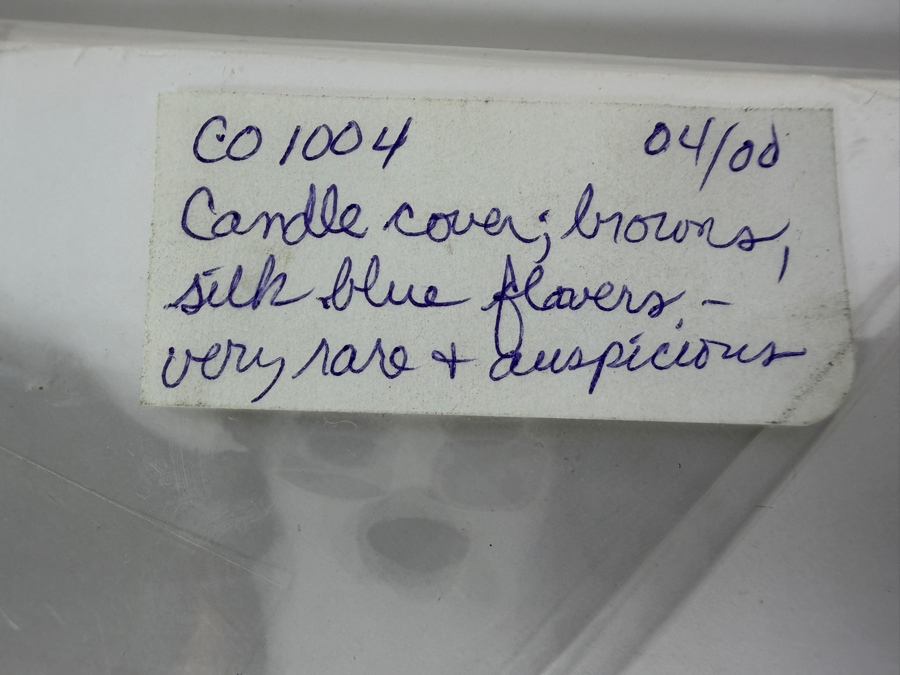 CO 1004 04/00
Candle cover; browns,
silk blue flowers, -
very rare + auspicious